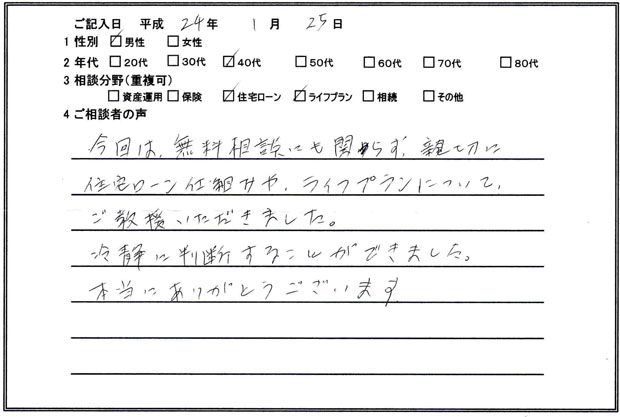 ご記入日 平成 24年 1月 25日
1 性別 ☑男性 □女性
2 年代 □20代 □30代 ☑40代 □50代 □60代 □70代 □80代
3 相談分野(重複可)
□資産運用 □保険 ☑住宅ローン ☑ライフプラン □相続 □その他
4 ご相談者の声
今回は、無料相談にも関わらず、親切に
住宅ローン仕組みや、ライフプランについて、
ご教援いただきました。
冷静に判断することができました。
本当にありがとうございます